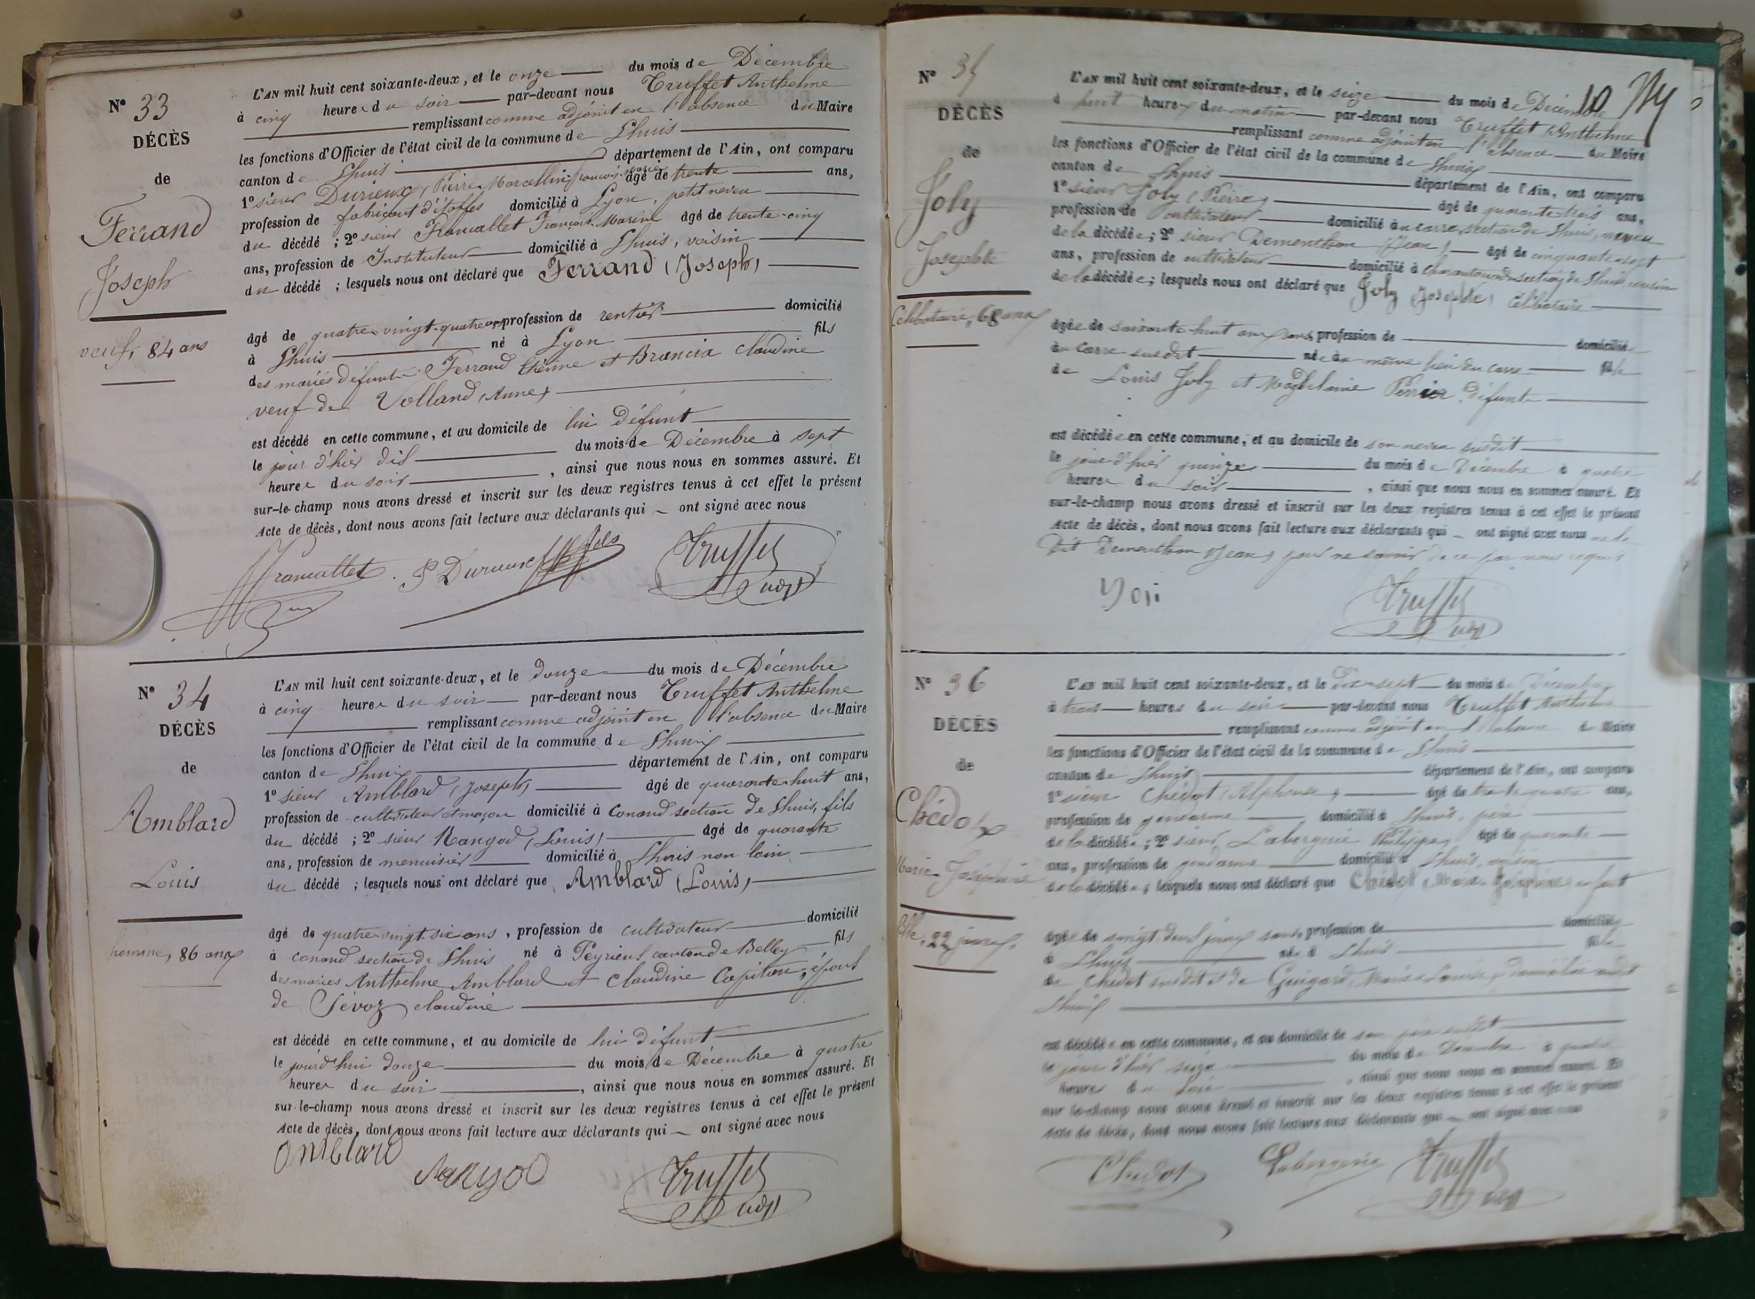 N° 33
DÉCÈS
de
Ferrand
Joseph
veuf, 84 ans
L'AN mil huit cent soixante-deux, et le onze du mois de Décembre
à cinq heures du soir par-devant nous Truffet Anthelme
remplissant comme adjoint en l'absence du Maire
les fonctions d'Officier de l'état civil de la commune de Lhuis
canton de Lhuis département de l'Ain, ont comparu
1° sieur Durieux, Pierre Marcellin âgé de trente ans,
profession de fabricant d'étoffes domicilié à Lyon, petit neveu
du décédé ; 2° sieur Francallet François Marine âgé de trente-cinq
ans, profession de Instituteur domicilié à Lhuis, voisin
du décédé ; lesquels nous ont déclaré que Ferrand (Joseph)
âgé de quatre-vingt-quatre ans profession de rentier domicilié
à Lhuis né à Lyon fils
des mariés défunts Ferrand Etienne et Brancia Claudine
veuf de Volland (Anne)
est décédé en cette commune, et au domicile de lui défunt
le jour d'hier dix du mois de Décembre à sept
heures du soir, ainsi que nous nous en sommes assuré. Et
sur-le-champ nous avons dressé et inscrit sur les deux registres tenus à cet effet le présent
Acte de décès, dont nous avons fait lecture aux déclarants qui ont signé avec nous
Francallet P Durieux fils Truffet adjt
N° 34
DÉCÈS
de
Amblard
Louis
homme, 86 ans
L'AN mil huit cent soixante-deux, et le douze du mois de Décembre
à cinq heures du soir par-devant nous Truffet Anthelme
remplissant comme adjoint en l'absence du Maire
les fonctions d'Officier de l'état civil de la commune de Lhuis
canton de Lhuis département de l'Ain, ont comparu
1° sieur Amblard (Joseph) âgé de quarante-huit ans,
profession de cultivateur et maçon domicilié à Conand section de Lhuis, fils
du décédé ; 2° sieur Rangod (Louis) âgé de quarante
ans, profession de menuisier domicilié à Lhuis non loin
du décédé ; lesquels nous ont déclaré que Amblard (Louis)
âgé de quatre-vingt six ans, profession de cultivateur domicilié
à Conand section de Lhuis né à Peyrieu canton de Belley fils
des mariés Anthelme Amblard et Claudine Capitan, époux
de Sevoz Claudine
est décédé en cette commune, et au domicile de lui défunt
le jourd'hui douze du mois de Décembre à quatre
heures du soir, ainsi que nous nous en sommes assuré. Et
sur-le-champ nous avons dressé et inscrit sur les deux registres tenus à cet effet le présent
Acte de décès, dont nous avons fait lecture aux déclarants qui ont signé avec nous
Amblard Rangod Truffet adjt
10
N° 35
DÉCÈS
de
Joly
Josephte
Célibataire, 68 ans
L'AN mil huit cent soixante-deux, et le seize du mois de Décembre
à huit heures du matin par-devant nous Truffet Anthelme
remplissant comme adjoint en l'absence du Maire
les fonctions d'Officier de l'état civil de la commune de Lhuis
canton de Lhuis département de l'Ain, ont comparu
1° sieur Joly (Pierre) âgé de quarante trois ans,
profession de cultivateur domicilié à section de Lhuis, neveu
de la décédée ; 2° sieur Dementhon (Jean) âgé de cinquante-sept
ans, profession de cultivateur domicilié à section de Lhuis
de la décédée ; lesquels nous ont déclaré que Joly Josephte, célibataire
âgée de soixante-huit ans sans profession de domiciliée
au Carre susdit née au même lieu du Carre fille
de Louis Joly et Magdelaine Perrier défunts
est décédée en cette commune, et au domicile de son neveu susdit
le jour d'hier quinze du mois de Décembre à quatre
heures du soir, ainsi que nous nous en sommes assuré. Et
sur-le-champ nous avons dressé et inscrit sur les deux registres tenus à cet effet le présent
Acte de décès, dont nous avons fait lecture aux déclarants qui ont signé avec nous
dit Dementhon Jean, pour ne savoir, de ce par nous requis
Joli Truffet adjt
N° 36
DÉCÈS
de
Chédot
Marie-Joséphine
fille, 22 jours
L'AN mil huit cent soixante-deux, et le dix-sept du mois de Décembre
à trois heures du soir par-devant nous Truffet Anthelme
remplissant comme adjoint en l'absence du Maire
les fonctions d'Officier de l'état civil de la commune de Lhuis
canton de Lhuis département de l'Ain, ont comparu
1° sieur Chédot (Alphonse) âgé de trente-quatre ans,
profession de gendarme domicilié à Lhuis, père
de la décédée ; 2° sieur Labergerie Philippe âgé de quarante
ans, profession de gendarme domicilié à Lhuis, voisin
de la décédée ; lesquels nous ont déclaré que Chédot, Marie-Joséphine, enfant
âgée de vingt deux jours sans profession de domiciliée
à Lhuis née à Lhuis fille
de Chédot susdit et de Guigard, Marie Louise, domiciliée audit
Lhuis
est décédée en cette commune, et au domicile de son père susdit
le jour d'hier seize du mois de Décembre à quatre
heures du soir, ainsi que nous nous en sommes assuré. Et
sur-le-champ nous avons dressé et inscrit sur les deux registres tenus à cet effet le présent
Acte de décès, dont nous avons fait lecture aux déclarants qui ont signé avec nous
Chédot Labergerie Truffet adjt